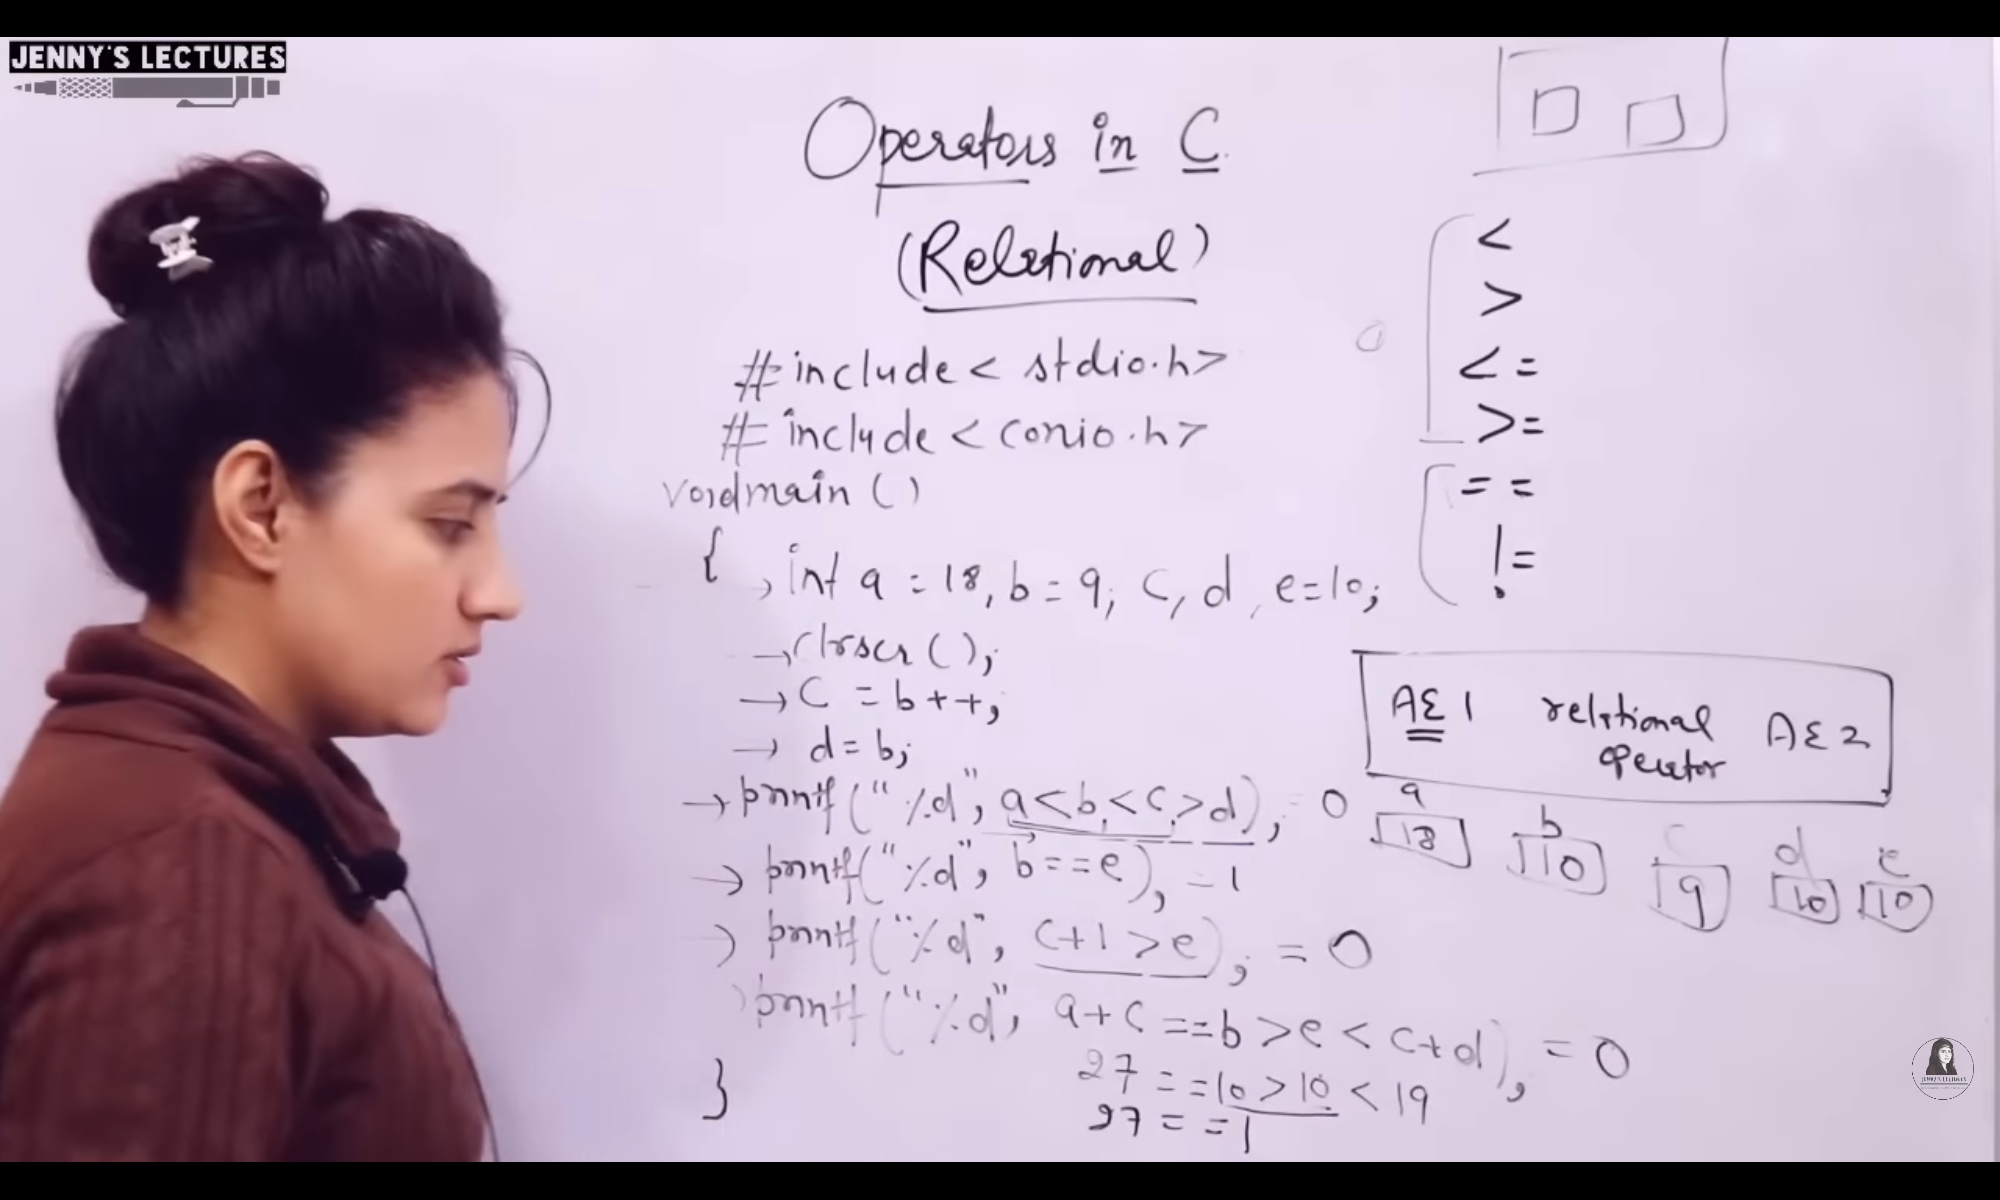 JENNY'S LECTURES
Operators in C
(Relational)
# include < stdio.h>
# include < conio.h>
void main ()
{ int a = 18, b = 9, c, d, e=10;
→ clrscr ();
→ c = b++;
→ d = b;
→ printf ("%d", a<b<c>d); = 0
→ printf ("%d", b==e); = 1
→ printf ("%d", c+1 >e); = 0
printf ("%d", a+c ==b >e < c+d); = 0
27 = =10 > 10 < 19
27 = = 1
}
<
>
< =
>=
= =
!=
AE 1 relational operator AE 2
a b c d e
18 10 9 10 10